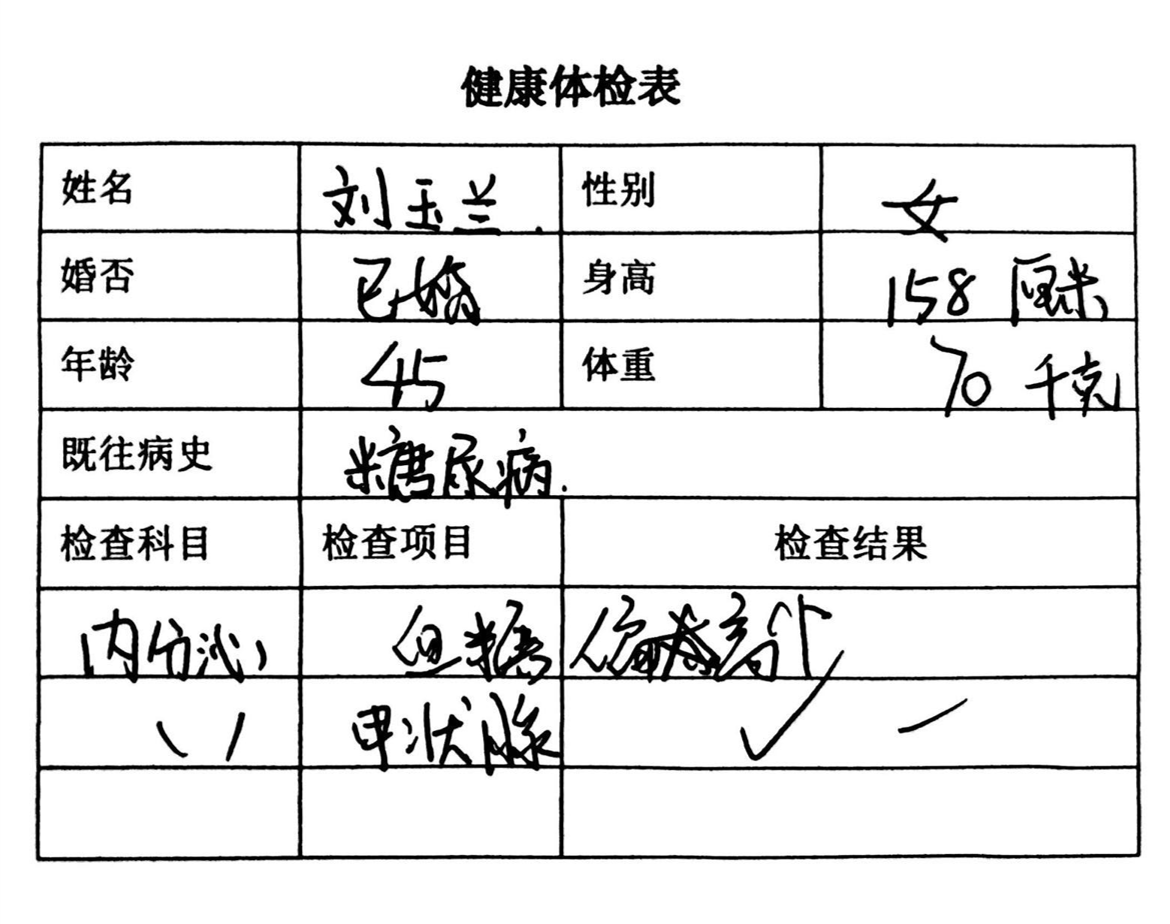 健康体检表
姓名 刘玉兰. 性别 女
婚否 已婚 身高 158 厘米
年龄 45 体重 70 千克
既往病史 糖尿病.
检查科目 检查项目 检查结果
内分泌 血糖 偏高个
\ / 甲状腺 ✓ —